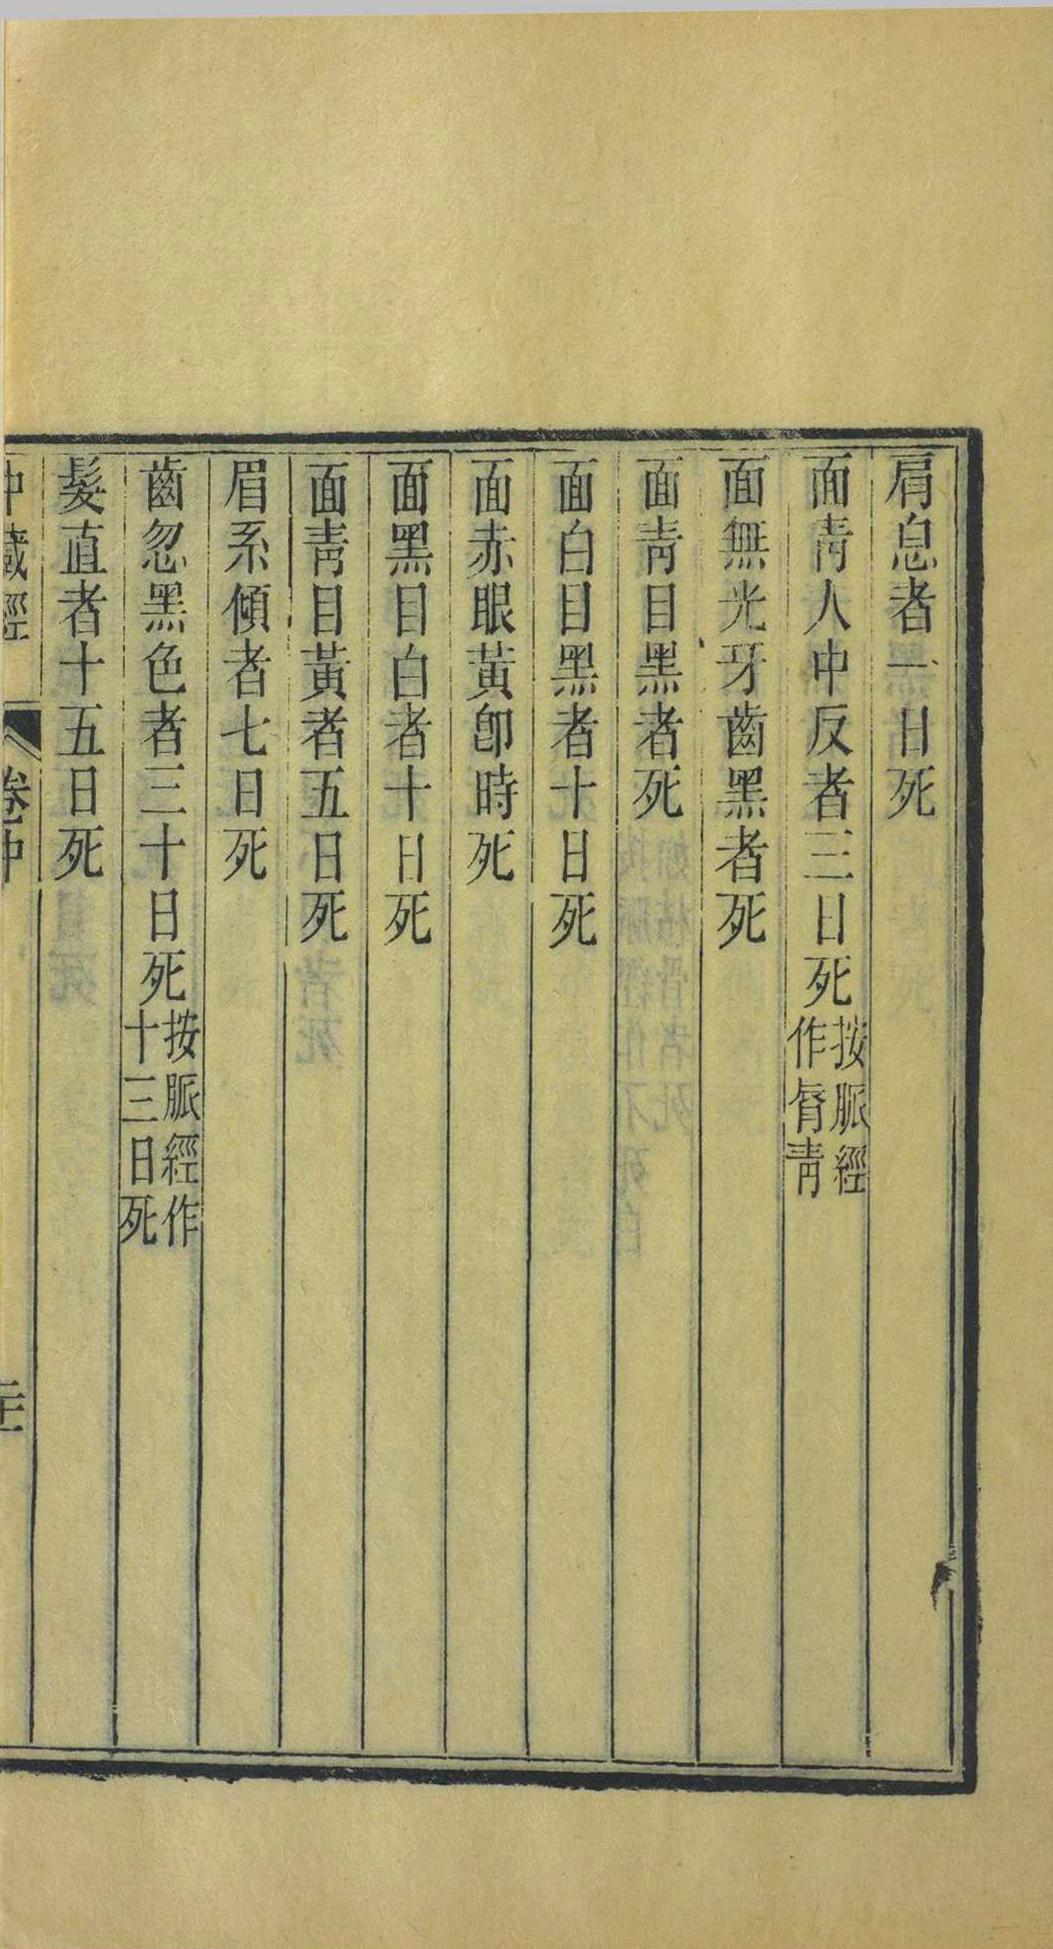 肩息者一日死
面青人中反者三日死按脈經作脣青
面無光牙齒黑者死
面青目黑者死
面白目黑者十日死
面赤眼黃卽時死
面黑目白者十日死
面青目黃者五日死
眉系傾者七日死
齒忽黑色者三十日死按脈經作十三日死
髮直者十五日死
中藏經 卷中